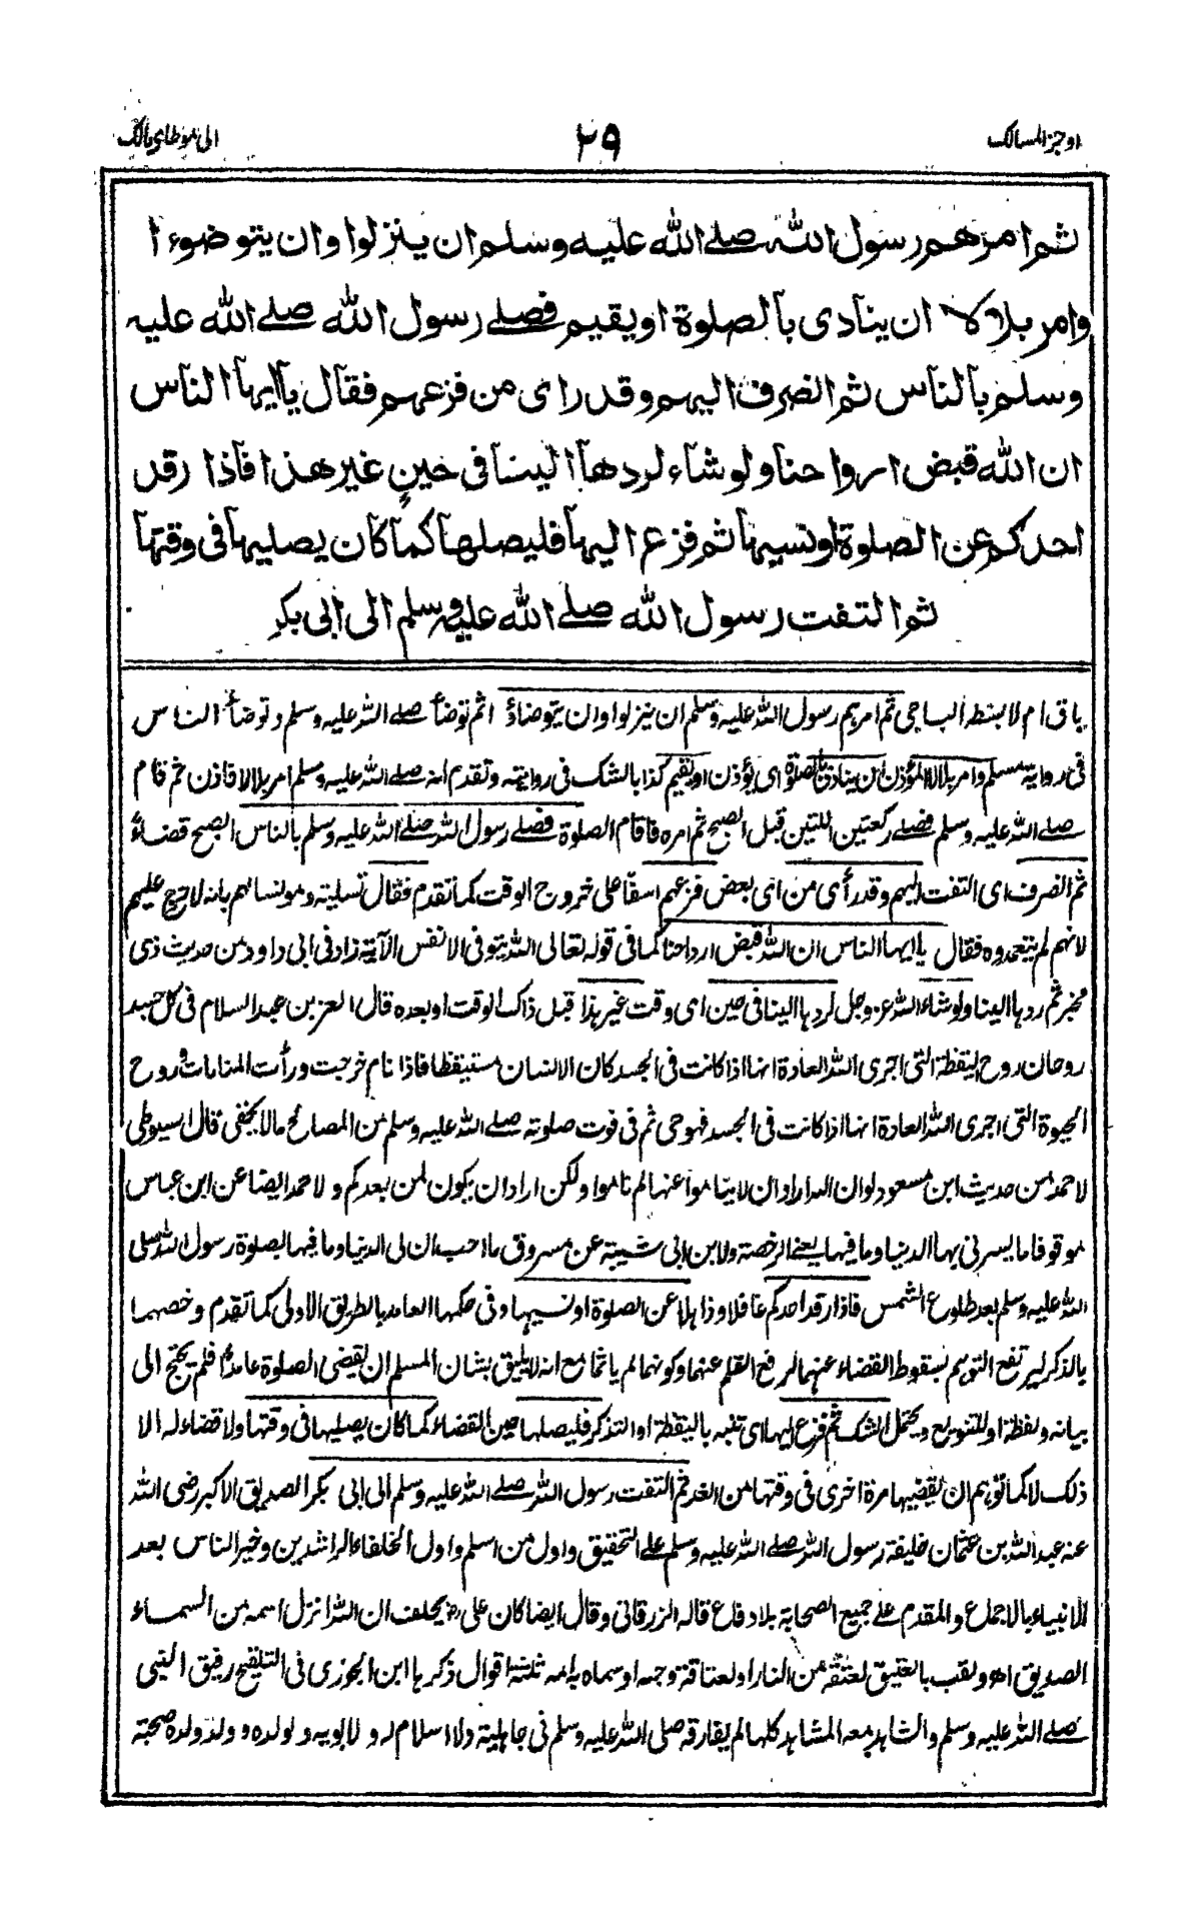 اوجز المسالك
٢٩
الى موطا مالك
ثم امرهم رسول الله صلے الله عليه وسلم ان ينزلوا وان يتوضوءا
وامر بلالا ان ينادى بالصلوة او يقيم فصلے رسول الله صلے الله عليه
وسلم بالناس ثم انصرف اليهم وقد راى من فزعهم فقال يا ايها الناس
ان الله قبض ارواحنا ولو شاء لردها الينا فى حين غير هذا فاذا رقد
احدكم عن الصلوة او نسيها ثم فزع اليها فليصلها كما كان يصليها فى وقتها
ثم التفت رسول الله صلے الله عليه وسلم الى ابى بكر
باق ام لا بنظر الباجى ثم امرهم رسول الله عليه وسلم ان ينزلوا وان يتوضاؤ اثم توضأ صلے الله عليه وسلم وتوضأ الناس
فى رواية مسلم وامر بلالا المؤذن ان ينادى بالصلوة اى يؤذن او يقيم كذا بالشك فى روايته وتقدم انه صلے الله عليه وسلم امر بلالا فاذن ثم قام
صلے الله عليه وسلم فصلے ركعتين اللتين قبل الصبح ثم امره فاقام الصلوة فصلے رسول الله صلے الله عليه وسلم بالناس الصبح قضاءً
ثم انصرف اى التفت اليهم وقد رأى من اى بعض فزعهم اسفا على خروج الوقت كما تقدم فقال تسلية ومونسا لهم بانه لا حرج عليهم
لانهم لم يتعمدوه فقال يا ايها الناس ان الله قبض ارواحنا كما فى قوله تعالى الله يتوفى الانفس الآية زاد فى ابى داود من حديث ذى
مخبر ثم ردها الينا ولو شاء الله عز وجل لردها الينا فى حين اى وقت غير هذا قبل ذاك الوقت او بعده قال العز بن عبد السلام فى كل جسد
روحان روح اليقظة التى اجرى الله العادة انها اذا كانت فى الجسد كان الانسان مستيقظا فاذا نام خرجت ورأت المنامات وروح
الحيوة التى اجرى الله العادة انها اذا كانت فى الجسد فهو حى ثم فى فوت صلوته صلے الله عليه وسلم من المصالح ما لا يخفى قال السيوطى
لاحمد من حديث ابن مسعود لو ان الله اراد ان لا يناموا عنها لم تناموا ولكن اراد ان يكون لمن بعدكم و لاحمد ايضا عن ابن عباس
موقوفا ما يسرنى بها الدنيا وما فيها يعنى الرخصة ولابن ابى شيبة عن مسروق ما احب ان لى الدنيا وما فيها بصلوة رسول الله صلى
الله عليه وسلم بعد طلوع الشمس فاذا رقد احدكم غافلا وذاهلا عن الصلوة او نسيها وفى حكمها العامد بالطريق الاولى كما تقدم وخصهما
بالذكر ليرتفع التوهم بسقوط القضاء عنهما لرفع القلم عنهما وكونهما لم ياثما مع انه لا يليق بشان المسلم ان يقضى الصلوة عامدًا فلم يحتج الى
بيانه ولفظة او للتنويع ويحتمل الشك ثم فزع اليها اى تنبه باليقظة او التذكر فليصلها حين القضاء كما كان يصليها فى وقتها ولا قضاء له الا
ذلك لا كما توهم ان يقضيها مرة اخرى فى وقتها من الغد ثم التفت رسول الله صلے الله عليه وسلم الى ابى بكر الصديق الاكبر رضى الله
عنه عبد الله بن عثمان خليفة رسول الله صلے الله عليه وسلم على التحقيق واول من اسلم واول الخلفاء الراشدين وخير الناس بعد
الانبياء بالاجماع والمقدم علے جميع الصحابة بلا دفاع قاله الزرقانى وقال ايضا كان على رض يحلف ان الله انزل اسمه من السماء
الصديق اھ ولقب بالعتيق لعتقه من النار او لعتاقة وجهه او سماه به امه ثلثة اقوال ذكرها ابن الجوزى فى التلقيح رفيق النبى
صلے الله عليه وسلم والشاهد معه المشاهد كلها لم يفارقه صلى الله عليه وسلم فى جاهلية ولا اسلام له ولابويه ولولده وولد ولده صحبة